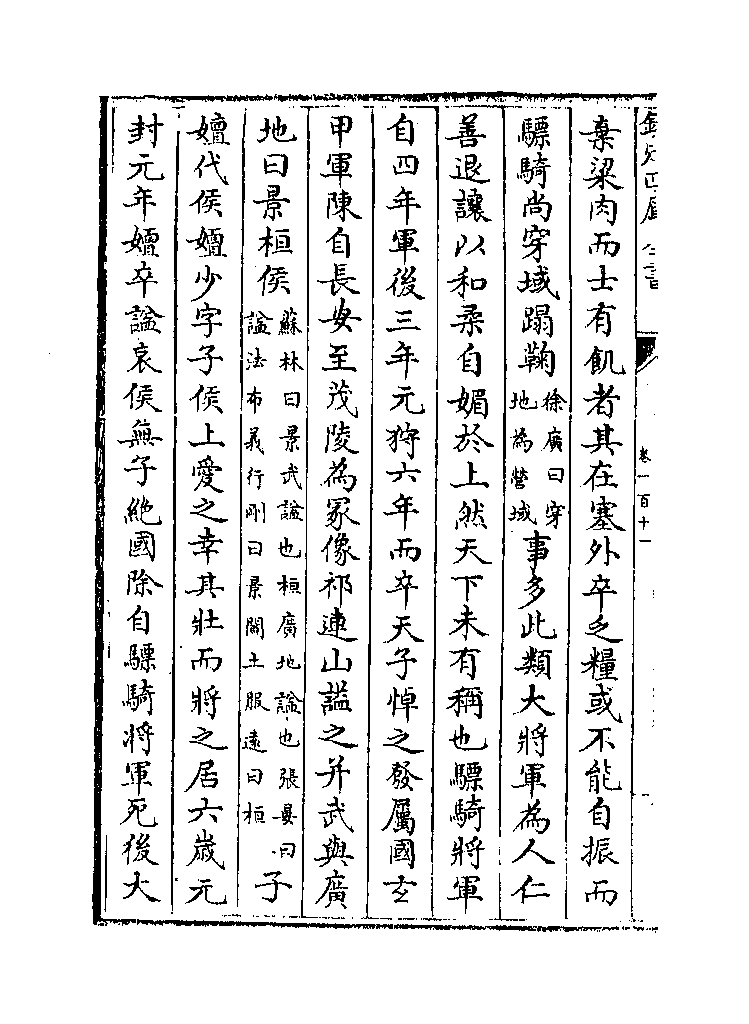 欽定四庫全書
卷一百十一
棄粱肉而士有飢者其在塞外卒乏糧或不能自振而
驃騎尚穿域蹋鞠徐廣曰穿地為營域事多此類大將軍為人仁
善退讓以和柔自媚於上然天下未有稱也驃騎將軍
自四年軍後三年元狩六年而卒天子悼之發屬國玄
甲軍陳自長安至茂陵為冢像祁連山諡之并武與廣
地曰景桓侯蘇林曰景武諡也桓廣地諡也張晏曰諡法布義行剛曰景闢土服遠曰桓子
嬗代侯嬗少字子侯上愛之幸其壯而將之居六歲元
封元年嬗卒諡哀侯無子絶國除自驃騎將軍死後大